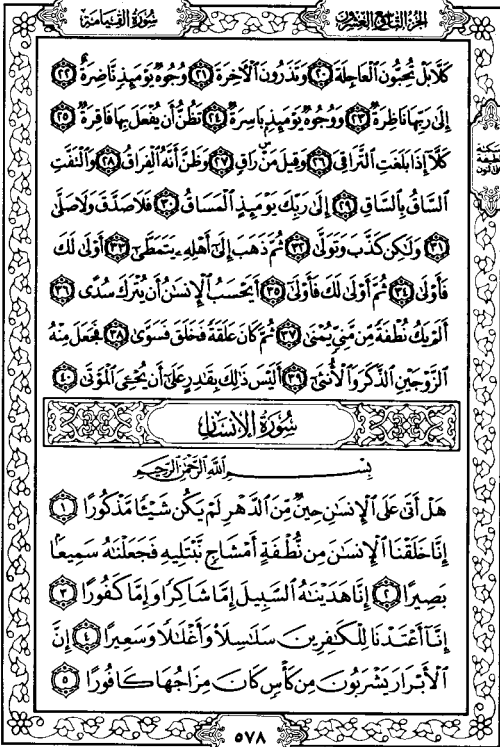 سُورَةُ القِيَامَةِ
الجُزْءُ التَّاسِعُ وَالعِشْرُونَ
كَلَّا بَلْ تُحِبُّونَ ٱلْعَاجِلَةَ ۝٢٠ وَتَذَرُونَ ٱلْأَخِرَةَ ۝٢١ وُجُوهٌ يَوْمَئِذٍ نَّاضِرَةٌ ۝٢٢
إِلَىٰ رَبِّهَا نَاظِرَةٌ ۝٢٣ وَوُجُوهٌ يَوْمَئِذٍ بَاسِرَةٌ ۝٢٤ تَظُنُّ أَن يُفْعَلَ بِهَا فَاقِرَةٌ ۝٢٥
كَلَّآ إِذَا بَلَغَتِ ٱلتَّرَاقِىَ ۝٢٦ وَقِيلَ مَنْ رَاقٍ ۝٢٧ وَظَنَّ أَنَّهُ ٱلْفِرَاقُ ۝٢٨ وَٱلْتَفَّتِ
ٱلسَّاقُ بِٱلسَّاقِ ۝٢٩ إِلَىٰ رَبِّكَ يَوْمَئِذٍ ٱلْمَسَاقُ ۝٣٠ فَلَا صَدَّقَ وَلَا صَلَّىٰ
۝٣١ وَلَٰكِن كَذَّبَ وَتَوَلَّىٰ ۝٣٢ ثُمَّ ذَهَبَ إِلَىٰٓ أَهْلِهِۦ يَتَمَطَّىٰٓ ۝٣٣ أَوْلَىٰ لَكَ
فَأَوْلَىٰ ۝٣٤ ثُمَّ أَوْلَىٰ لَكَ فَأَوْلَىٰٓ ۝٣٥ أَيَحْسَبُ ٱلْإِنسَٰنُ أَن يُتْرَكَ سُدًى ۝٣٦
أَلَمْ يَكُ نُطْفَةً مِّن مَّنِىٍّ يُمْنَىٰ ۝٣٧ ثُمَّ كَانَ عَلَقَةً فَخَلَقَ فَسَوَّىٰ ۝٣٨ فَجَعَلَ مِنْهُ
ٱلزَّوْجَيْنِ ٱلذَّكَرَ وَٱلْأُنثَىٰٓ ۝٣٩ أَلَيْسَ ذَٰلِكَ بِقَٰدِرٍ عَلَىٰٓ أَن يُحْـِۧىَ ٱلْمَوْتَىٰ ۝٤٠
سُورَةُ الإِنسَانِ
بِسْمِ ٱللَّهِ ٱلرَّحْمَٰنِ ٱلرَّحِيمِ
هَلْ أَتَىٰ عَلَى ٱلْإِنسَٰنِ حِينٌ مِّنَ ٱلدَّهْرِ لَمْ يَكُن شَيْـًٔا مَّذْكُورًا ۝١
إِنَّا خَلَقْنَا ٱلْإِنسَٰنَ مِن نُّطْفَةٍ أَمْشَاجٍ نَّبْتَلِيهِ فَجَعَلْنَٰهُ سَمِيعًۢا
بَصِيرًا ۝٢ إِنَّا هَدَيْنَٰهُ ٱلسَّبِيلَ إِمَّا شَاكِرًا وَإِمَّا كَفُورًا ۝٣
إِنَّآ أَعْتَدْنَا لِلْكَٰفِرِينَ سَلَٰسِلَا۟ وَأَغْلَٰلًا وَسَعِيرًا ۝٤ إِنَّ
ٱلْأَبْرَارَ يَشْرَبُونَ مِن كَأْسٍ كَانَ مِزَاجُهَا كَافُورًا ۝٥
٥٧٨